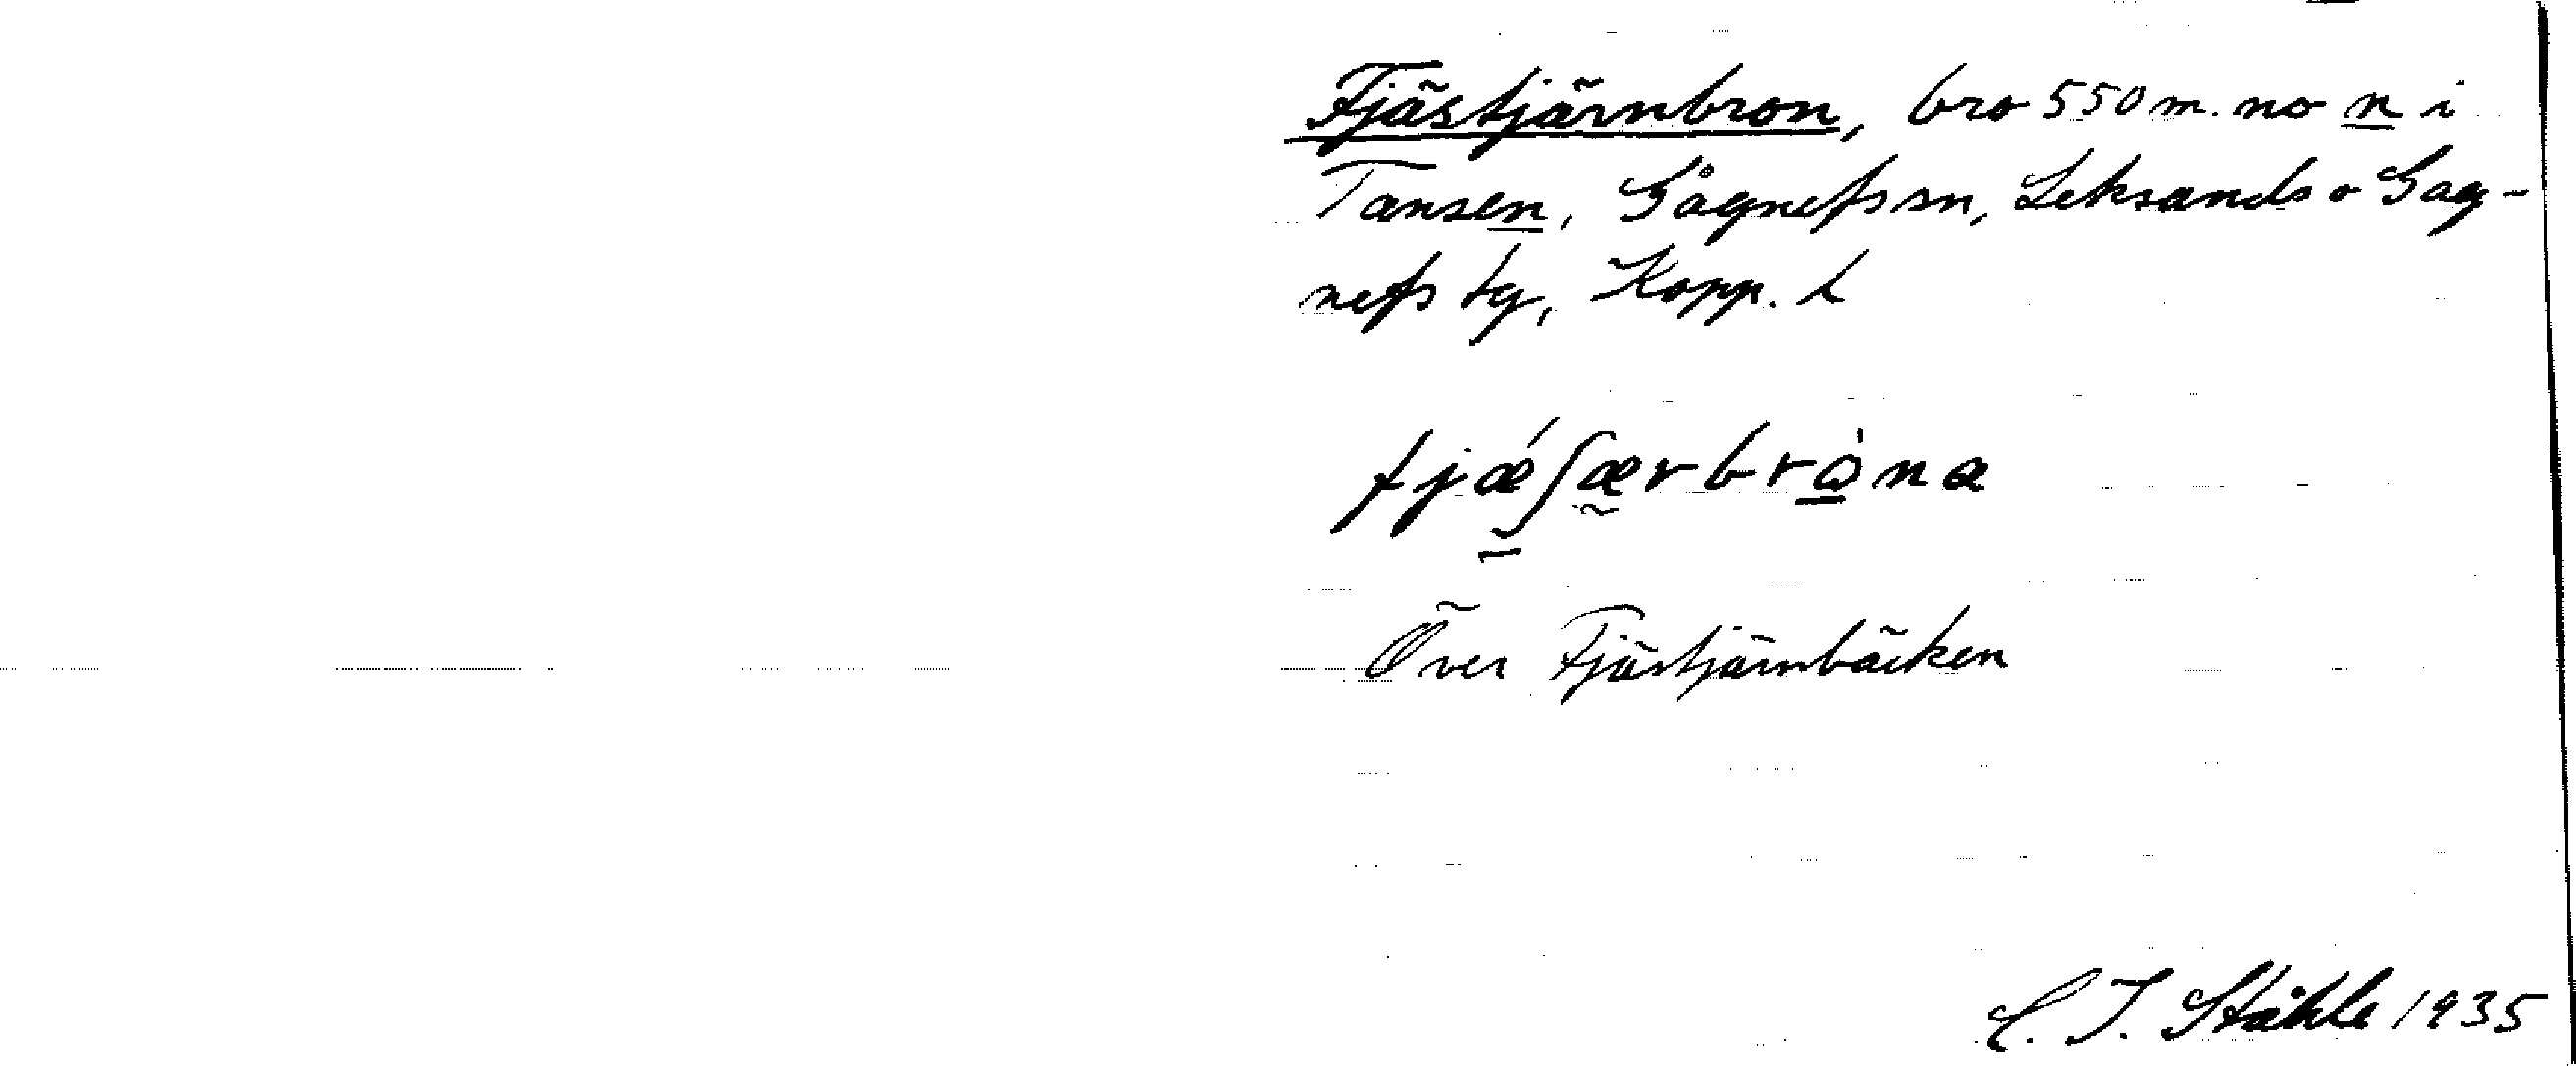 Fjästjärnbron, bro 550 m. no n i
Tansen, Gagnefs sn, Leksands o Gag-
nefs tg, Kopp. l
fjǽʃærbròna
Över Fjästjärnbäcken
C. I. Ståhle 1935